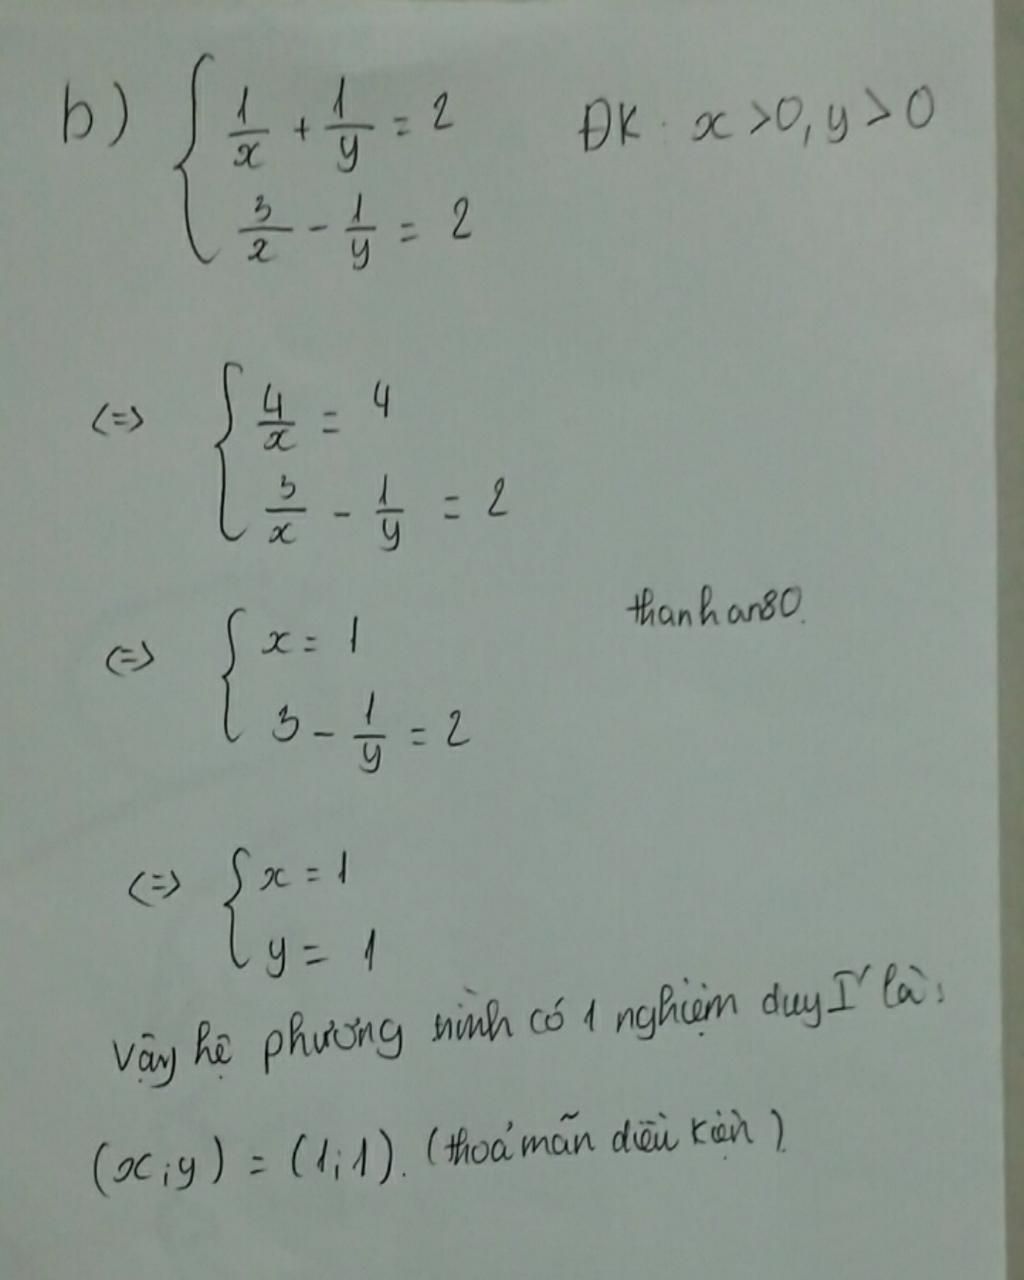 b) { 1/x + 1/y = 2 ĐK: x > 0, y > 0
3/x - 1/y = 2
<=> { 4/x = 4
3/x - 1/y = 2
thanhan80.
<=> { x = 1
3 - 1/y = 2
<=> { x = 1
y = 1
Vậy hệ phương trình có 1 nghiệm duy I' là:
(x;y) = (1;1). (thoả mãn điều kiện)